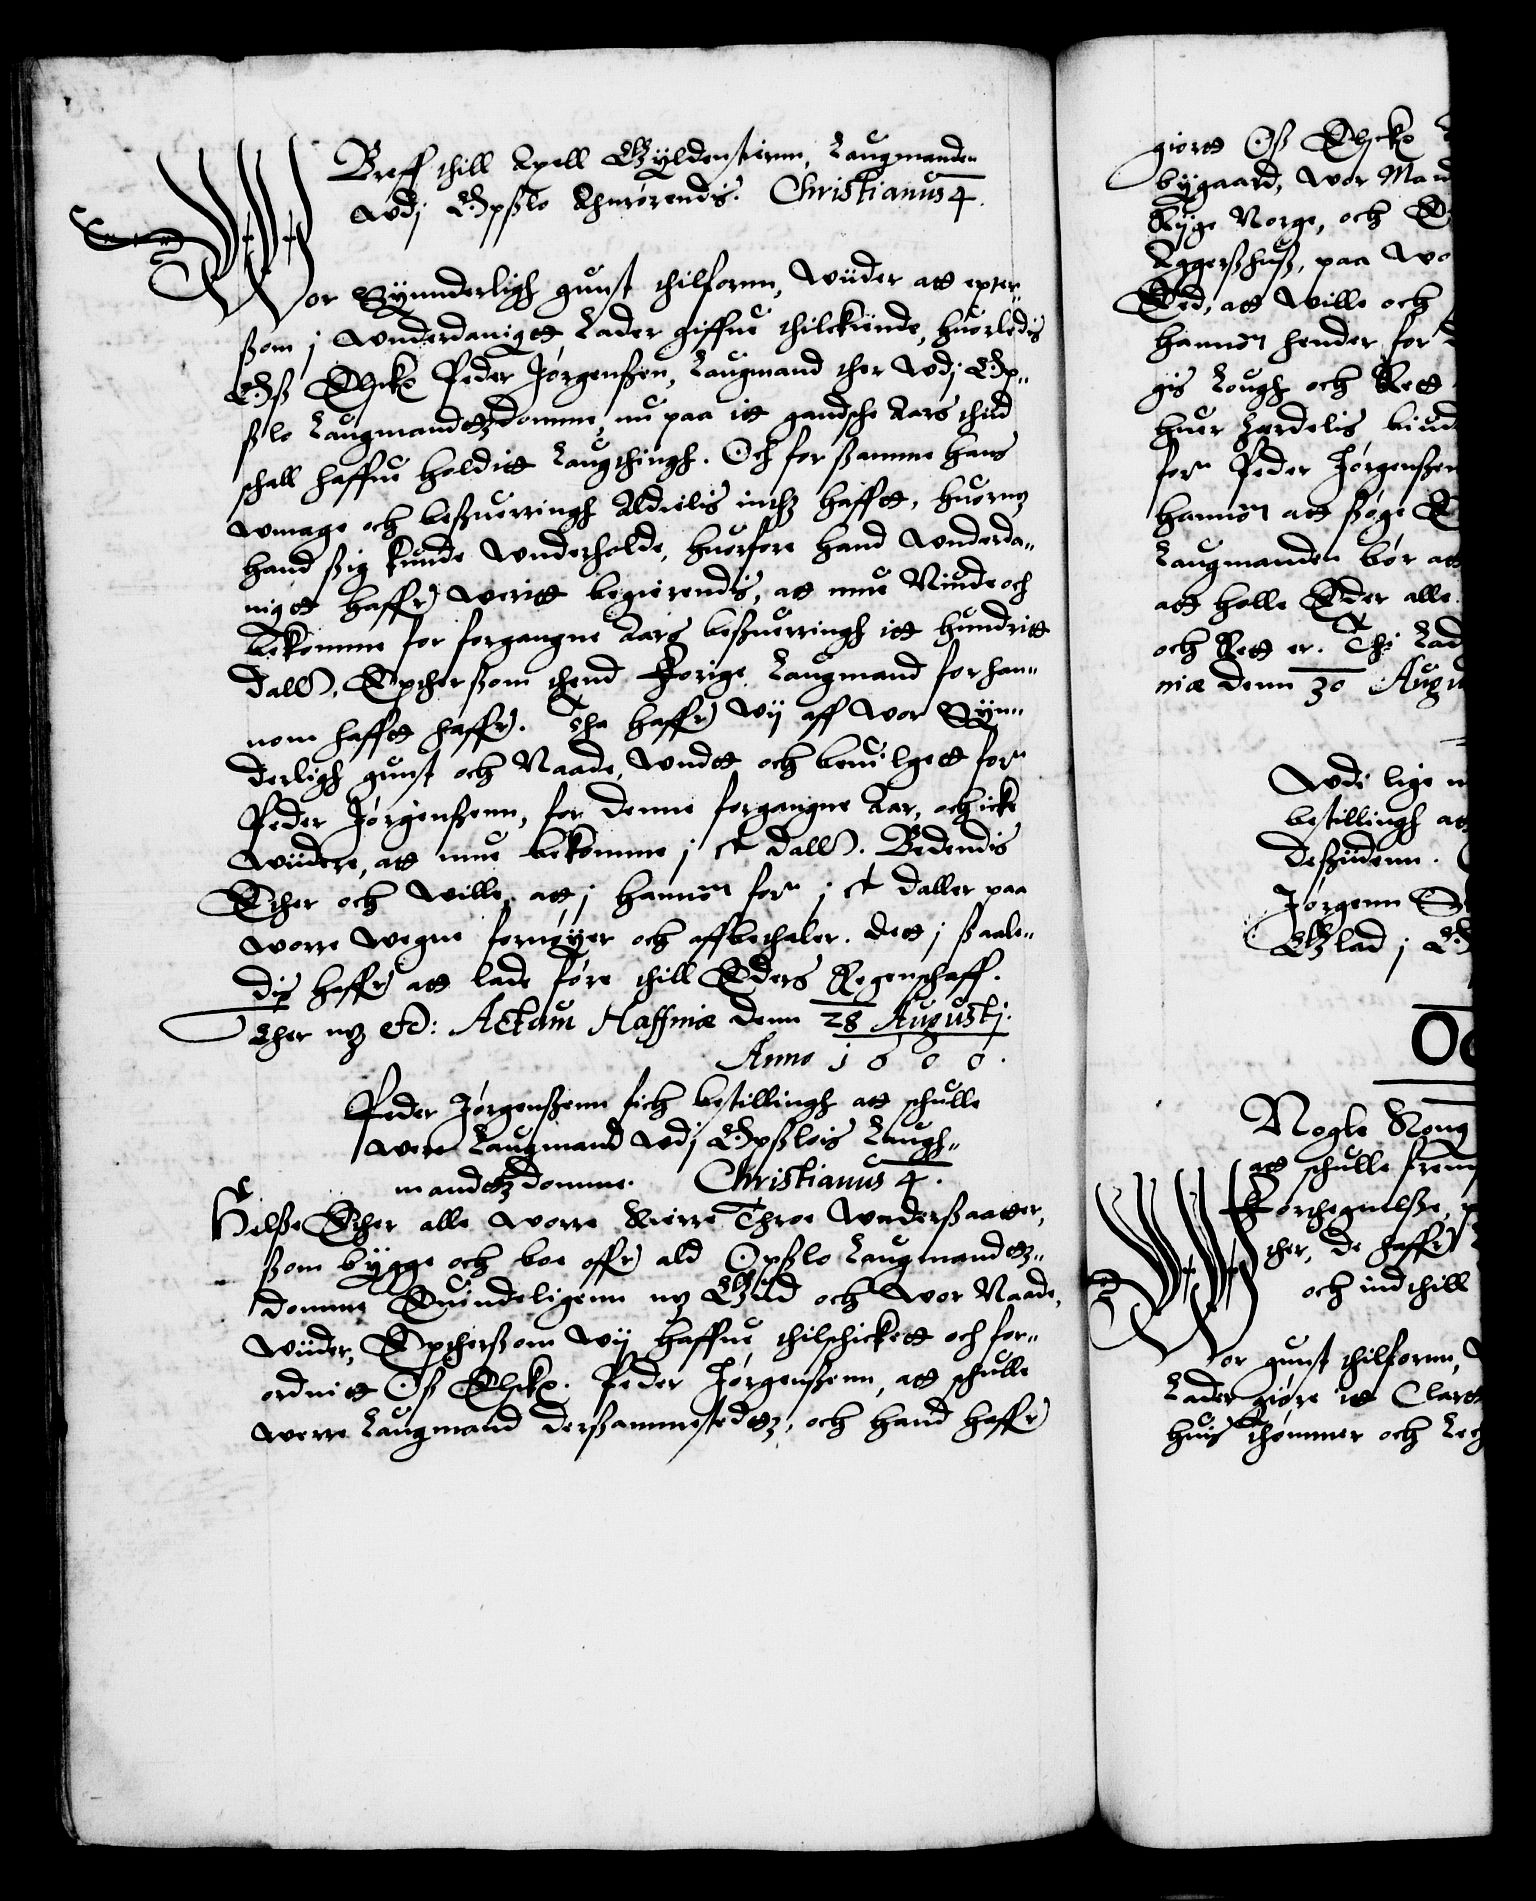 Breff thill Axell Gÿldenstiernn, Laugmanden
wdj Opßlo Anrørendis. Christianus 4.
Wor Sÿnnderligh gunst thilfornn, Wiider att epter¬
ßom j Wnderdanigtt Lader giffue thilckiende, huorledis
Oß Elske Peder Jørgenßen, Laugmand ther wdj Op¬
ßlo Laugmandtzdomme, nu paa itt gandsche Aars thiid
schall haffue holditt Laugthingh. Och for ßamme hans
wmage och beßuerringh Aldielis intz hafftt, huormz
hand ßig kunde Wnderholde, huorfore hand Wnderda¬
nigtt haffr weritt begierendis, att mue Niude och
bekomme for forgangne Aars beßuerringh itt hundritt
dallr. Eptherßom thend Forige Laugmand for han¬
nom hafftt haffr. Tha haffr Wij aff Wor Sÿn¬
derligh gunst och Naade, Wndtt och beuilgett forn
Peder Jørgenßenn, for denne forgangne Aar, och icke
wiidere, att mue bekomme j ct dallr. Bedendis
Ether och Wille, att j hannom forn j ct daller paa
worre Wegne fornøÿer och aff bethaler. Dett j ßaale¬
dis haffr att lade føre thill Eders Regenschaff.
Ther mz etc: Actum Haffniæ denn 28 Augustj.
Anno 1600.
Peder Jørgenßenn fich bestillingh att schulle
were Laugmand wdj Opßlois Laugh¬
mandtzdomme. Christianus 4.
Hilße Ether alle Worre Kierre Throe Wnderßaatter,
ßom bÿgge och boe offr ald Opßlo Laugmandtz¬
domme Euindeligenn mz Gud och Wor Naade,
Wiider, Eptherßom Wij haffue thilschickett och for¬
ordnitt Oß Elske. Peder Jørgenßenn, att schulle
werre Laugmand derßammestedtz, och hand haffr
giortt Oß Elske
bÿgaard, Wor Mand
Rÿge Norge, och
Aggerßhuß, paa Wo
Eed, att wille och
hannom hender for
gis Lough och Rett
huer særdelis biud
forn Peder Jørgenßen
hannom att ßøge
Laugmanden bør att
att holle Eder alle
och Rett er. Thj Lad
niæ denn 30 Augu
Wdi lige m
bestillingh att
deßudenn.
Jørgenn
Glad j
Nogle Kong
att schulle frem
Forthegnelße,
ther, de haffr
och ind thill
Wor gunst thilfornn,
Lader giøre itt Clartt
huis thømmer och Leg